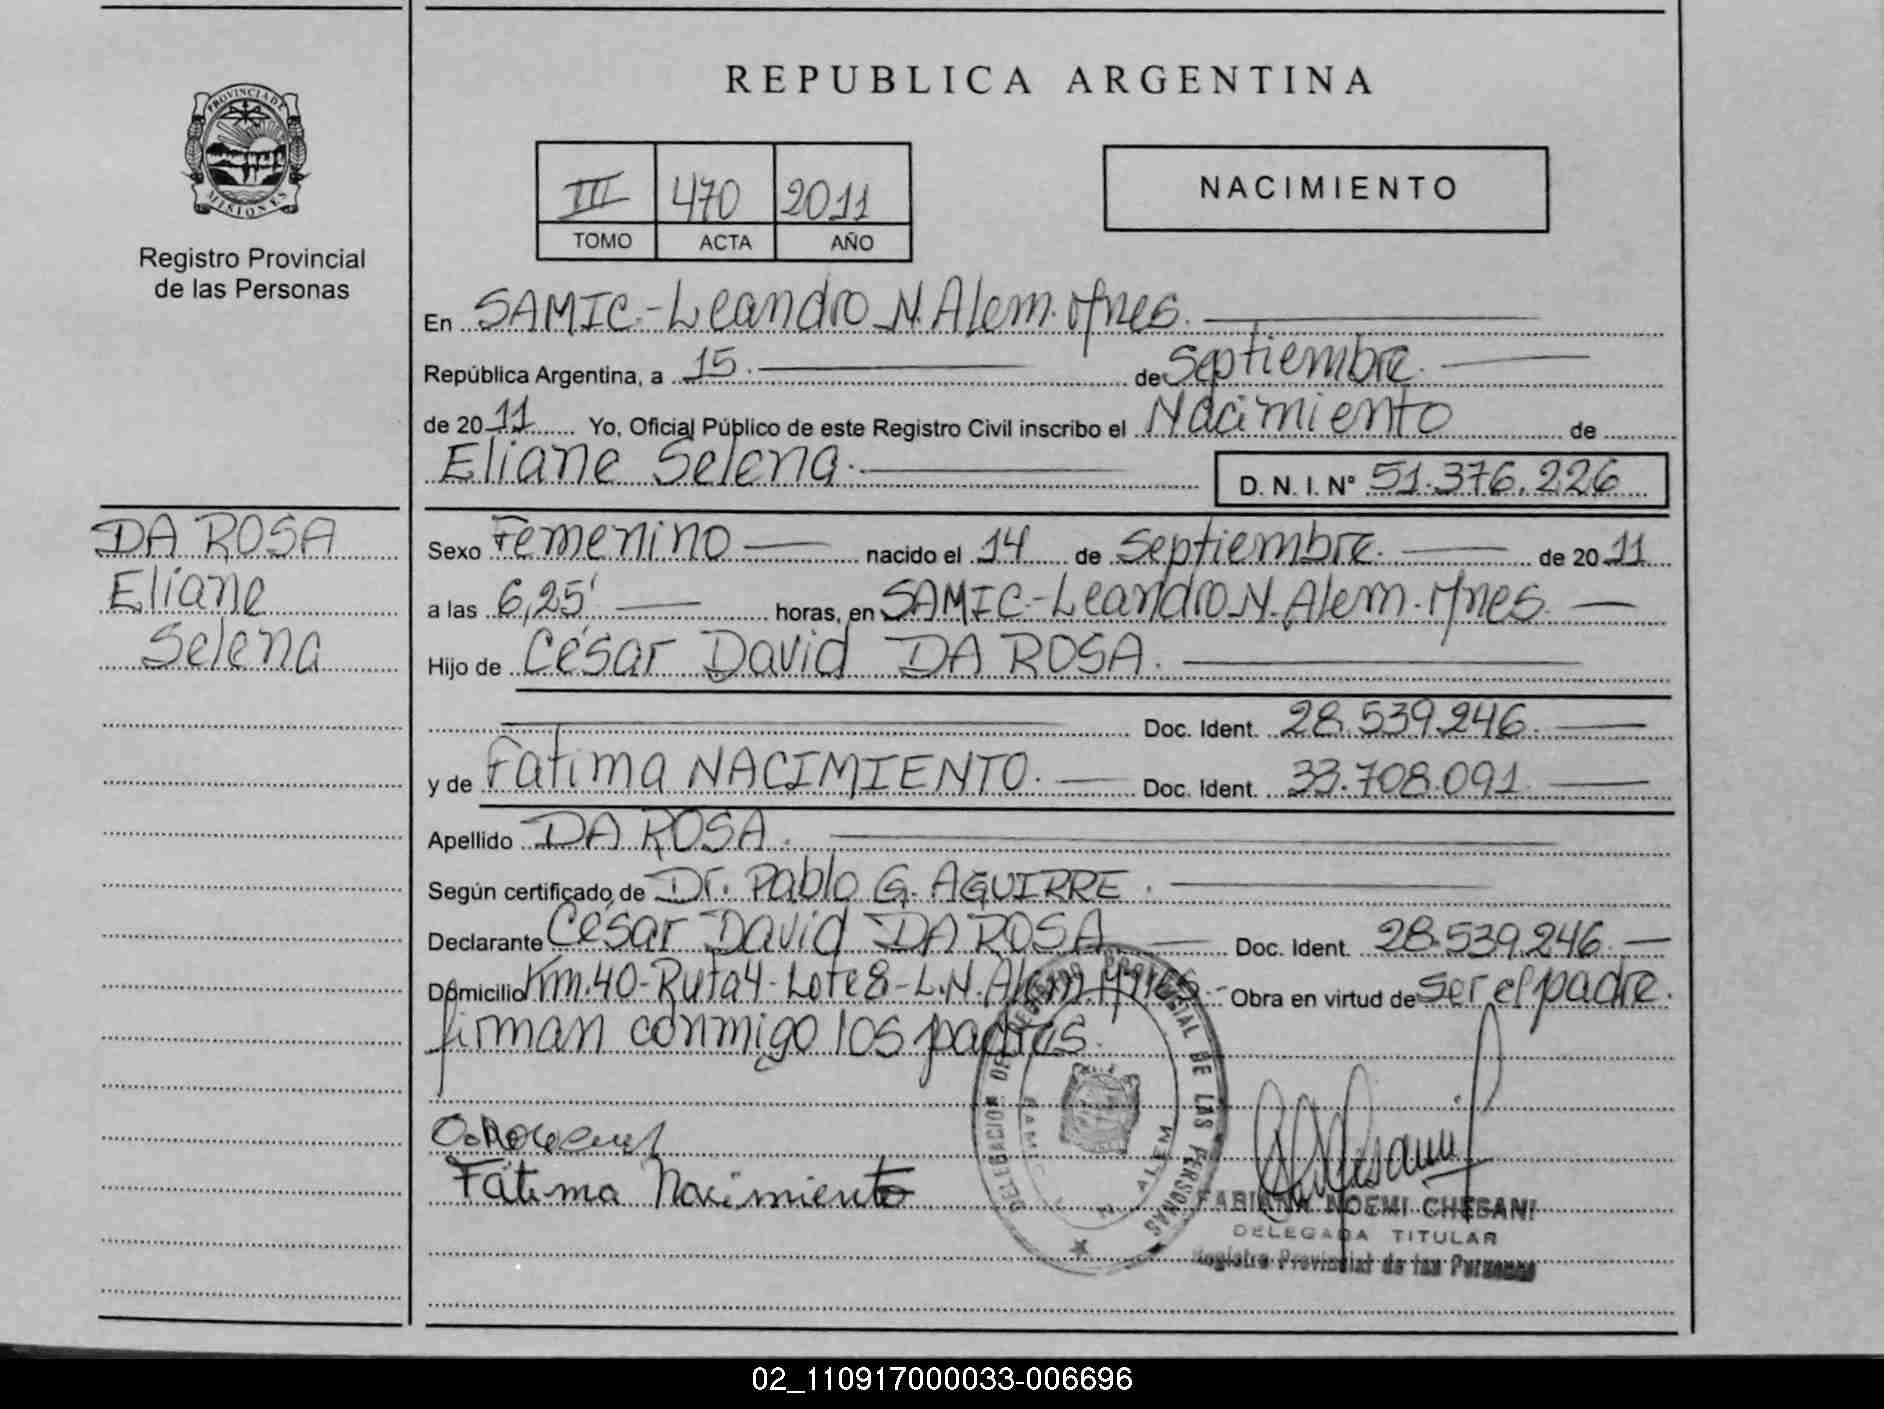 REPUBLICA ARGENTINA
PROVINCIA DE
MISIONES
Registro Provincial
de las Personas
III 470 2011
TOMO ACTA AÑO
NACIMIENTO
En SAMIC.-Leandro N. Alem. Mnes.
República Argentina, a 15. de Septiembre.
de 2011 Yo, Oficial Público de este Registro Civil inscribo el Nacimiento de
Eliane Selena. D. N. I. N° 51.376.226
DA ROSA
Eliane
Selena
Sexo Femenino nacido el 14 de Septiembre. de 2011
a las 6,25' horas, en SAMIC-Leandro N. Alem. Mnes.
Hijo de César David DA ROSA.
Doc. Ident. 28.539.246.
y de Fatima NACIMIENTO. Doc. Ident. 33.708.091.
Apellido DA ROSA.
Según certificado de Dr. Pablo G. AGUIRRE.
Declarante César David DA ROSA Doc. Ident. 28.539.246.
Domicilio Km.40-Ruta 4-Lote 8-L.N. Alem. Mnes.- Obra en virtud de ser el padre.
firman conmigo los padres.
Fátima Nacimiento
DELEGACION DEL REGISTRO PROVINCIAL DE LAS PERSONAS
SAMIC L. N. ALEM
FABIANA NOEMI CHESANI
DELEGADA TITULAR
Registro Provincial de las Personas
02_110917000033-006696